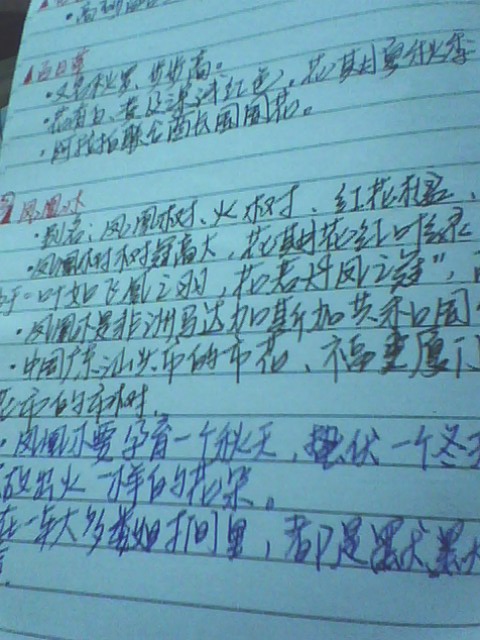 百日草
·又名秋罗、步步高。
·花有白、黄及深浅红色，花期夏什秋季
·阿拉伯联合酋长国国花。
凤凰木
·别名：凤凰树、火树、红花楹、
·凤凰木树冠高大，花期花红叶绿
于“叶如飞凰之羽，花若丹凤之冠”，
·凤凰木是非洲马达加斯加共和国
·中国广东汕头市的市花，福建厦门
市的市树
·凤凰木要孕育一个秋天，蛰伏一个冬天
放出火一样的花朵。
在一年大多数的时间里，都是默默